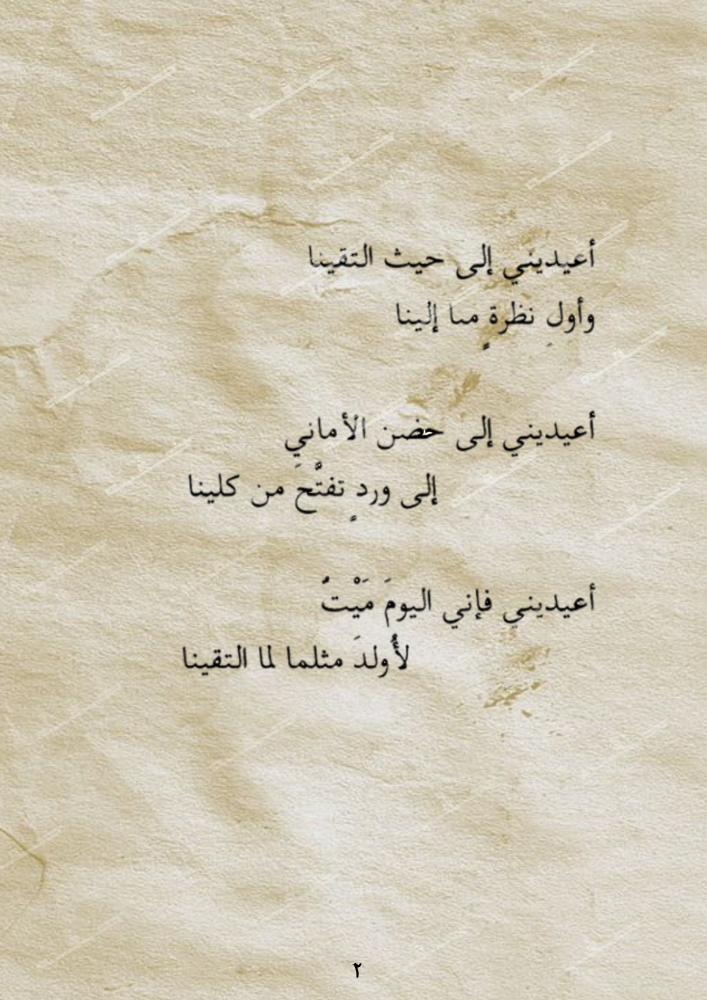 أعيديني إلى حيث التقينا
وأولِ نظرةٍ منا إلينا
أعيديني إلى حضن الأماني
إلى وردٍ تفتَّحَ من كلينا
أعيديني فإني اليومَ مَيْتٌ
لأُولدَ مثلما لما التقينا
٢